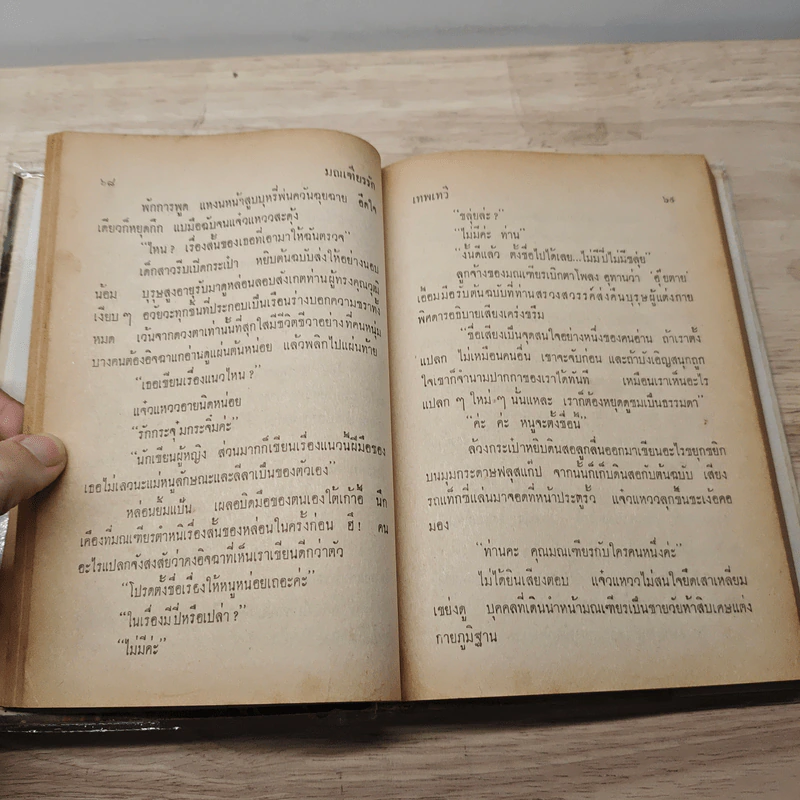 ๖๘
มณเฑียรรัก
พักการพูด แหงนหน้าสูบบุหรี่พ่นควันฉุยฉาย อึดใจ
เดียวก็หยุดกึก แบมือฉับจนแจ๋วแหววสะดุ้ง
“ไหน? เรื่องสั้นของเธอที่เอามาให้ฉันตรวจ”
เด็กสาวรีบเปิดกระเป๋า หยิบต้นฉบับส่งให้อย่างนอบ
น้อม บุรุษสูงอายุรับมาดูหล่อนลอบสังเกตท่านผู้ทรงคุณวุฒิ
เงียบ ๆ อวัยวะทุกชิ้นที่ประกอบเป็นเรือนร่างบอกความชราทั้ง
หมด เว้นจากดวงตาเท่านั้นที่สุกใสมีชีวิตชีวาอย่างที่คนหนุ่ม
บางคนต้องอิจฉาแกอ่านดูแผ่นต้นหน่อย แล้วพลิกไปแผ่นท้าย
“เธอเขียนเรื่องแนวไหน?”
แจ๋วแหววอายนิดหน่อย
“รักกระจุ๋มกระจิ๋มค่ะ”
“นักเขียนผู้หญิง ส่วนมากก็เขียนเรื่องแนวนี้ฝีมือของ
เธอไม่เลวนะแม่หนูลักษณะและลีลาเป็นของตัวเอง”
หล่อนยิ้มแป้น เผลอบิดมือของตนเองใต้เก้าอี้ นึก
เคืองที่มณเฑียรตำหนิเรื่องสั้นของหล่อนในครั้งก่อน ฮึ! คน
อะไรแปลกจังสงสัยว่าคงอิจฉาที่เห็นเราเขียนดีกว่าตัว
“โปรดตั้งชื่อเรื่องให้หนูหน่อยเถอะค่ะ”
“ในเรื่องมีปี่หรือเปล่า?”
“ไม่มีค่ะ”
เทพเทวี
๖๙
“ขลุ่ยล่ะ?”
“ไม่มีค่ะ ท่าน”
“งั้นดีแล้ว ตั้งชื่อไปได้เลย...ไม่มีปี่ไม่มีขลุ่ย”
ลูกจ้างของมณเฑียรเบิกตาโพลง อุทานว่า ‘อุ๊ยตาย’
เอื้อมมือรับต้นฉบับที่ท่านสรวงสวรรค์ส่งคืนบุรุษผู้แต่งกาย
พิศดารอธิบายเสียงเคร่งขรึม
“ชื่อเสียงเป็นจุดสนใจอย่างหนึ่งของคนอ่าน ถ้าเราตั้ง
แปลก ไม่เหมือนคนอื่น เขาจะจับก่อน และถ้าบังเอิญสนุกถูก
ใจเขาก็จำนามปากกาของเราได้ทันที เหมือนเราเห็นอะไร
แปลก ๆ ใหม่ ๆ นั่นแหละ เราก็ต้องหยุดดูชมเป็นธรรมดา”
“ค่ะ ค่ะ หนูจะตั้งชื่อนี้”
ล้วงกระเป๋าหยิบดินสอลูกลื่นออกมาเขียนอะไรขยุกขยิก
บนมุมกระดาษฟลุสแก๊ป จากนั้นก็เก็บดินสอกับต้นฉบับ เสียง
รถแท็กซี่แล่นมาจอดที่หน้าประตูรั้ว แจ๋วแหววลุกขึ้นชะเง้อคอ
มอง
“ท่านคะ คุณมณเฑียรกับใครคนหนึ่งค่ะ”
ไม่ได้ยินเสียงตอบ แจ๋วแหววไม่สนใจยึดเสาเหลี่ยม
เขย่งดู บุคคลที่เดินนำหน้ามณเฑียรเป็นชายวัยห้าสิบเศษแต่ง
กายภูมิฐาน